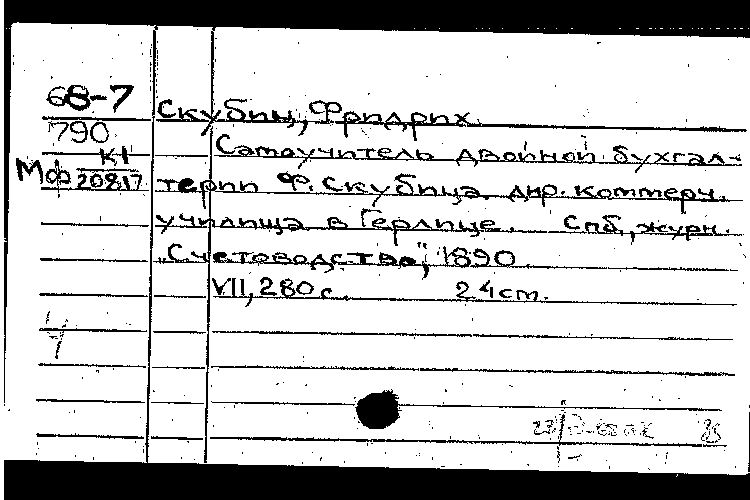 68-7
790
Мф К1
20817
Скубиц, Фридрих.
Самоучитель двойной бухгал-
терии Ф. Скубица дир. коммерч.
училища в Герлице. Спб., журн.
"Счетоводство", 1890.
VII, 280 с. 24 см.